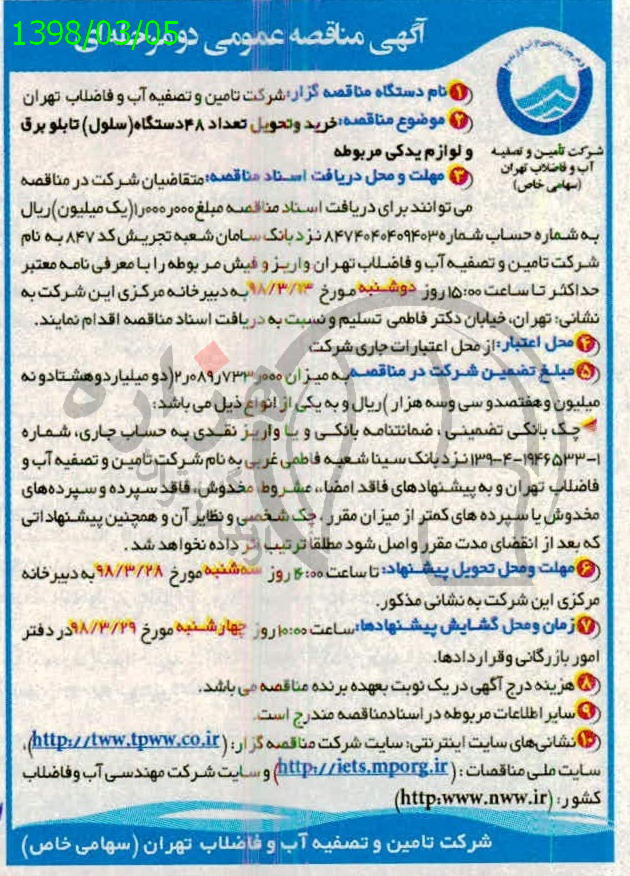 1398/03/05
آگهی مناقصه عمومی دو مرحله‌ای
شرکت تأمین و تصفیه
آب و فاضلاب تهران
(سهامی خاص)
۱ نام دستگاه مناقصه گزار: شرکت تامین و تصفیه آب و فاضلاب تهران
۲ موضوع مناقصه: خرید و تحویل تعداد ۴۸ دستگاه (سلول) تابلو برق
و لوازم یدکی مربوطه
۳ مهلت و محل دریافت اسناد مناقصه: متقاضیان شرکت در مناقصه
می توانند برای دریافت اسناد مناقصه مبلغ ۱٫۰۰۰٫۰۰۰ (یک میلیون) ریال
به شماره حساب شماره ۸۴۷۴۰۴۰۴۰۹۴۰۳ نزد بانک سامان شعبه تجریش کد ۸۴۷ به نام
شرکت تامین و تصفیه آب و فاضلاب تهران واریز و فیش مربوطه را با معرفی نامه معتبر
حداکثر تا ساعت ۱۵:۰۰ روز دوشنبه مورخ ۹۸/۳/۱۳ به دبیرخانه مرکزی این شرکت به
نشانی: تهران، خیابان دکتر فاطمی تسلیم و نسبت به دریافت اسناد مناقصه اقدام نمایند.
۴ محل اعتبار: از محل اعتبارات جاری شرکت
۵ مبلغ تضمین شرکت در مناقصه به میزان ۲٫۰۸۹٫۷۳۳٫۰۰۰ (دو میلیارد و هشتاد و نه
میلیون و هفتصد و سی و سه هزار) ریال و به یکی از انواع ذیل می باشد:
چک بانکی تضمینی، ضمانتنامه بانکی و یا واریز نقدی به حساب جاری، شماره
۱۳۹-۴-۱۹۴۶۵۳۳-۱ نزد بانک سینا شعبه فاطمی غربی به نام شرکت تامین و تصفیه آب و
فاضلاب تهران و به پیشنهادهای فاقد امضاء، مشروط مخدوش، فاقد سپرده و سپرده های
مخدوش یا سپرده های کمتر از میزان مقرر، چک شخصی و نظایر آن و همچنین پیشنهاداتی
که بعد از انقضای مدت مقرر واصل شود مطلقاً ترتیب اثر داده نخواهد شد.
۶ مهلت و محل تحویل پیشنهاد: تا ساعت ۱۶:۰۰ روز سه‌شنبه مورخ ۹۸/۳/۲۸ به دبیرخانه
مرکزی این شرکت به نشانی مذکور.
۷ زمان و محل گشایش پیشنهادها: ساعت ۱۰:۰۰ روز چهارشنبه مورخ ۹۸/۳/۲۹ در دفتر
امور بازرگانی و قراردادها.
۸ هزینه درج آگهی در یک نوبت بعهده برنده مناقصه می باشد.
۹ سایر اطلاعات مربوطه در اسناد مناقصه مندرج است.
۱۰ نشانی های سایت اینترنتی: سایت شرکت مناقصه گزار: (http://tww.tpww.co.ir)،
سایت ملی مناقصات: (http://iets.mporg.ir) و سایت شرکت مهندسی آب و فاضلاب
کشور: (http:www.nww.ir)
شرکت تامین و تصفیه آب و فاضلاب تهران (سهامی خاص)